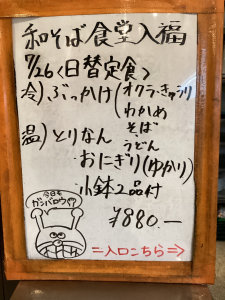 和そば食堂入福
7/26〈日替定食〉
冷)ぶっかけ(オクラ・きゅうり
わかめ
温)とりなん
そば
うどん
おにぎり(ゆかり)
小鉢2品付
¥880.—
今日も
ガンバロウ
=入口こちら⇒